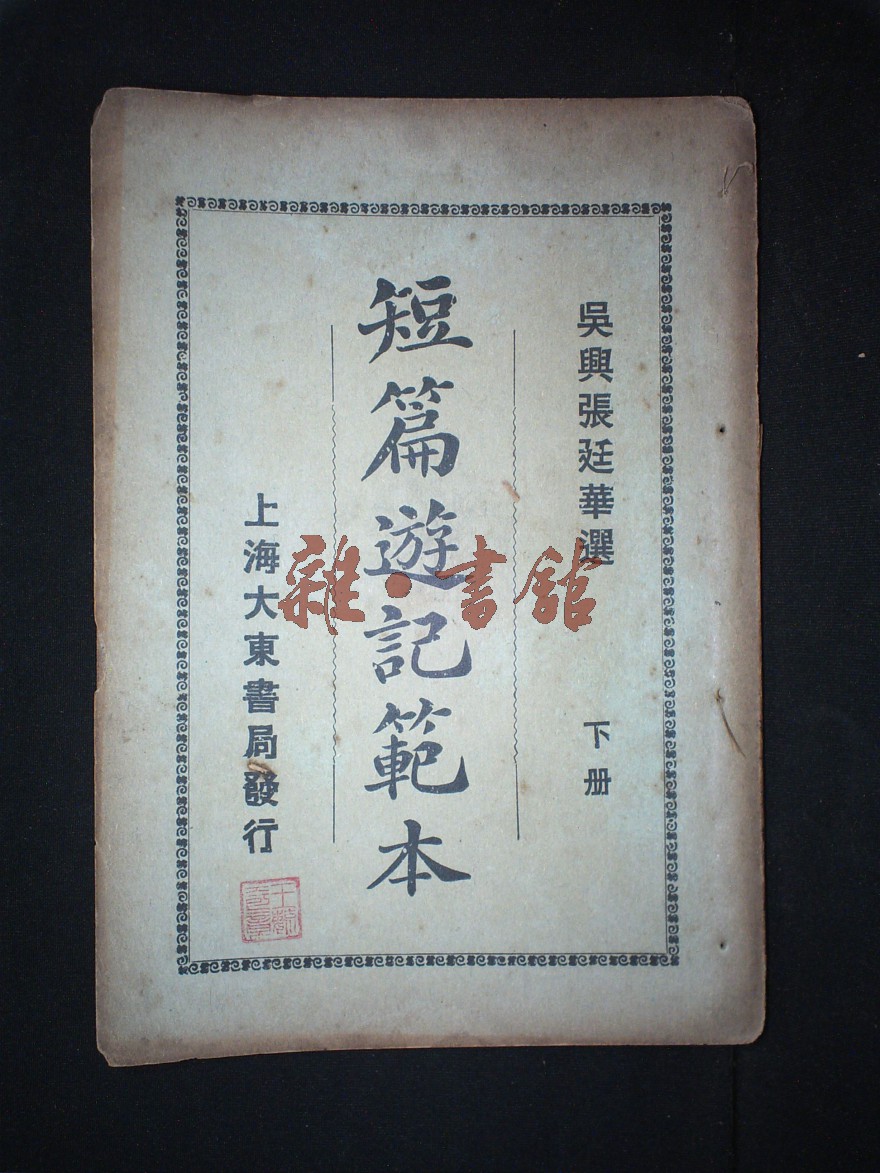 吳興張廷華選
下册
短篇遊記範本
上海大東書局發行
雜·書館